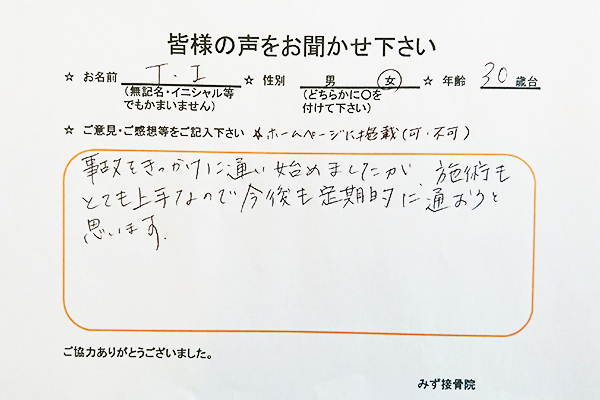 皆様の声をお聞かせ下さい
☆ お名前 T.I ☆ 性別 男 女 ☆ 年齢 30 歳台
(無記名・イニシャル等でもかまいません) (どちらかに〇を付けて下さい)
☆ ご意見・ご感想等をご記入下さい ★ホームページに掲載(可・不可)
事故をきっかけに通い始めましたが、施術も
とても上手なので今後も定期的に通おうと
思います.
ご協力ありがとうございました。
みず接骨院